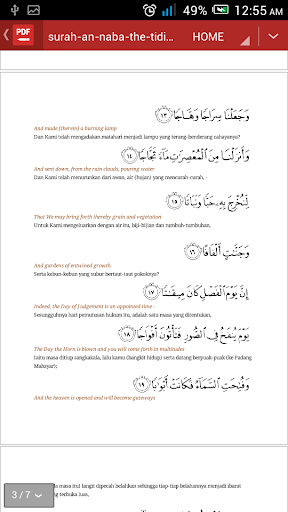 49% 12:55 AM
PDF surah-an-naba-the-tidi... HOME
وَجَعَلْنَا سِرَاجًا وَهَّاجًا ١٣
And made [therein] a burning lamp
Dan Kami telah mengadakan matahari menjadi lampu yang terang-benderang cahayanya?
وَأَنزَلْنَا مِنَ ٱلْمُعْصِرَٰتِ مَآءً ثَجَّاجًا ١٤
And sent down, from the rain clouds, pouring water
Dan Kami telah menurunkan dari awan, air (hujan) yang mencurah-curah, -
لِّنُخْرِجَ بِهِۦ حَبًّا وَنَبَاتًا ١٥
That We may bring forth thereby grain and vegetation
Untuk Kami mengeluarkan dengan air itu, biji-bijian dan tumbuh-tumbuhan,
وَجَنَّٰتٍ أَلْفَافًا ١٦
And gardens of entwined growth.
Serta kebun-kebun yang subur bertaut-taut pokoknya?
إِنَّ يَوْمَ ٱلْفَصْلِ كَانَ مِيقَٰتًا ١٧
Indeed, the Day of Judgement is an appointed time -
Sesungguhnya hari pemutusan hukum itu, adalah satu masa yang ditentukan,
يَوْمَ يُنفَخُ فِى ٱلصُّورِ فَتَأْتُونَ أَفْوَاجًا ١٨
The Day the Horn is blown and you will come forth in multitudes
Iaitu masa ditiup sangkakala, lalu kamu (bangkit hidup) serta datang berpuak-puak (ke Padang
Mahsyar);
وَفُتِحَتِ ٱلسَّمَآءُ فَكَانَتْ أَبْوَٰبًا ١٩
And the heaven is opened and will become gateways
masa itu) langit dipecah belahkan sehingga tiap-tiap belahannya menjadi ibarat
3 / 7
terbuka luas,